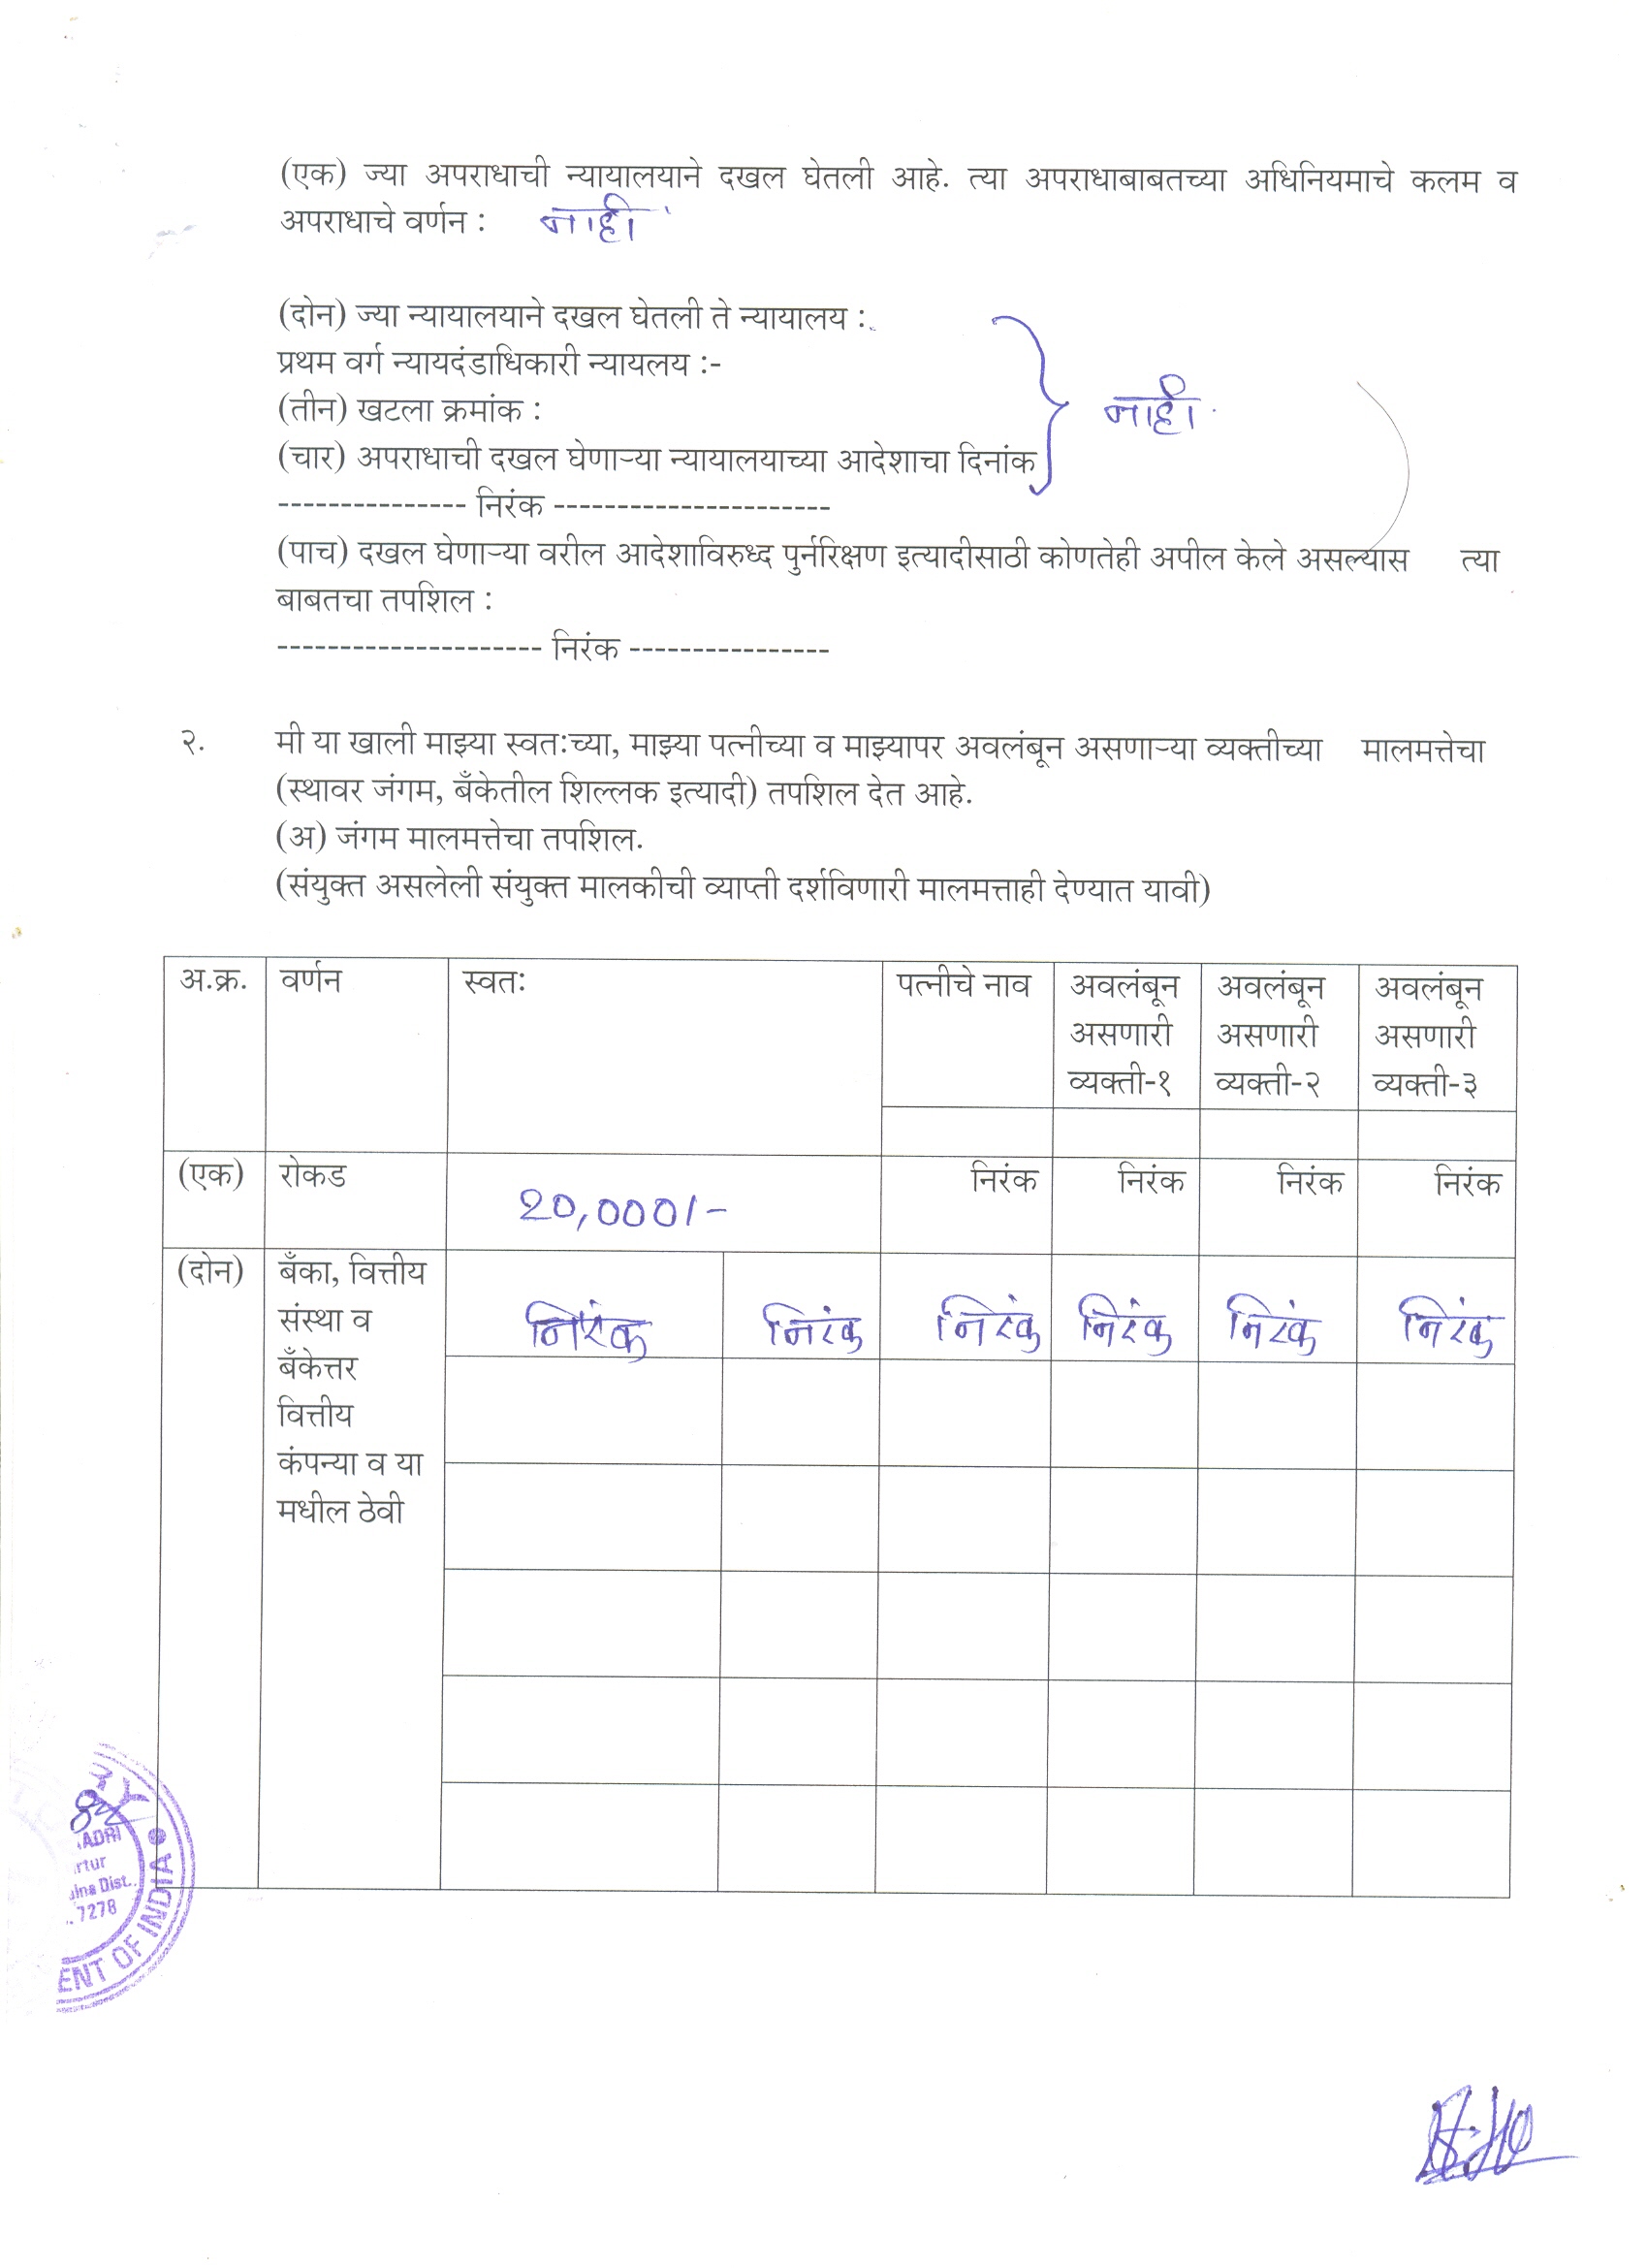 (एक) ज्या अपराधाची न्यायालयाने दखल घेतली आहे. त्या अपराधाबाबतच्या अधिनियमाचे कलम व
अपराधाचे वर्णन : नाही
(दोन) ज्या न्यायालयाने दखल घेतली ते न्यायालय :
प्रथम वर्ग न्यायदंडाधिकारी न्यायलय :-
(तीन) खटला क्रमांक :
नाही.
(चार) अपराधाची दखल घेणाऱ्या न्यायालयाच्या आदेशाचा दिनांक
--------------- निरंक ----------------------
(पाच) दखल घेणाऱ्या वरील आदेशाविरुध्द पुर्नरिक्षण इत्यादीसाठी कोणतेही अपील केले असल्यास त्या
बाबतचा तपशिल :
--------------------- निरंक ----------------
२. मी या खाली माझ्या स्वतःच्या, माझ्या पत्नीच्या व माझ्यापर अवलंबून असणाऱ्या व्यक्तीच्या मालमत्तेचा
(स्थावर जंगम, बँकेतील शिल्लक इत्यादी) तपशिल देत आहे.
(अ) जंगम मालमत्तेचा तपशिल.
(संयुक्त असलेली संयुक्त मालकीची व्याप्ती दर्शविणारी मालमत्ताही देण्यात यावी)
अ.क्र. वर्णन स्वतः पत्नीचे नाव अवलंबून अवलंबून अवलंबून
असणारी असणारी असणारी
व्यक्ती-१ व्यक्ती-२ व्यक्ती-३
(एक) रोकड 20,000/- निरंक निरंक निरंक निरंक
(दोन) बँका, वित्तीय
संस्था व निरंक निरंक निरंक निरंक निरंक निरंक
बँकेत्तर
वित्तीय
कंपन्या व या
मधील ठेवी
ADRI
rtur
Dist.
7278
ENT OF INDIA